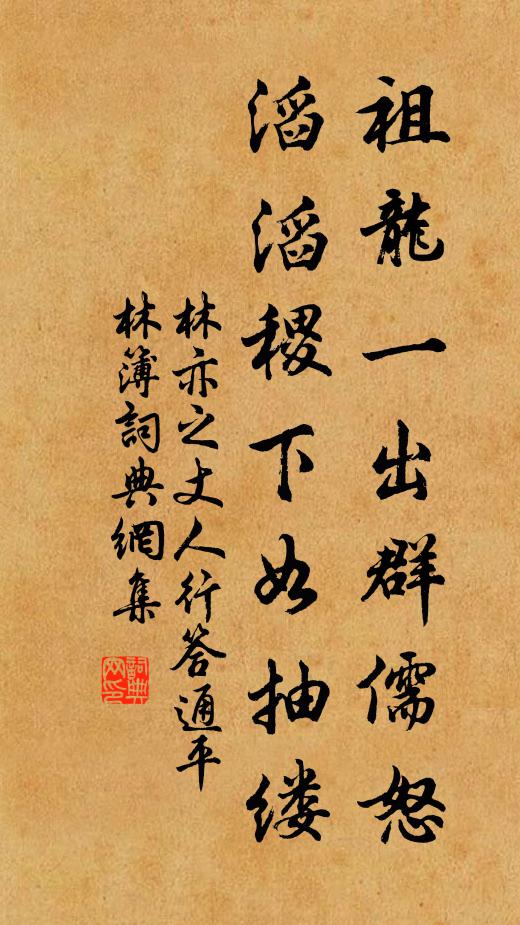 祖龍一出群儒怒
滔滔稷下如抽缕
林亦之丈人行答通平
林簿詞典網集
詞典网印